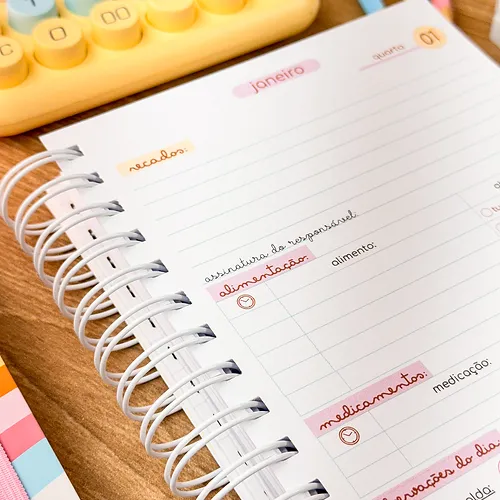 janeiro
quarta 01
recados:
assinatura do responsável:
alimentação:
alimento:
medicamentos:
medicação:
do dia
C 0 00